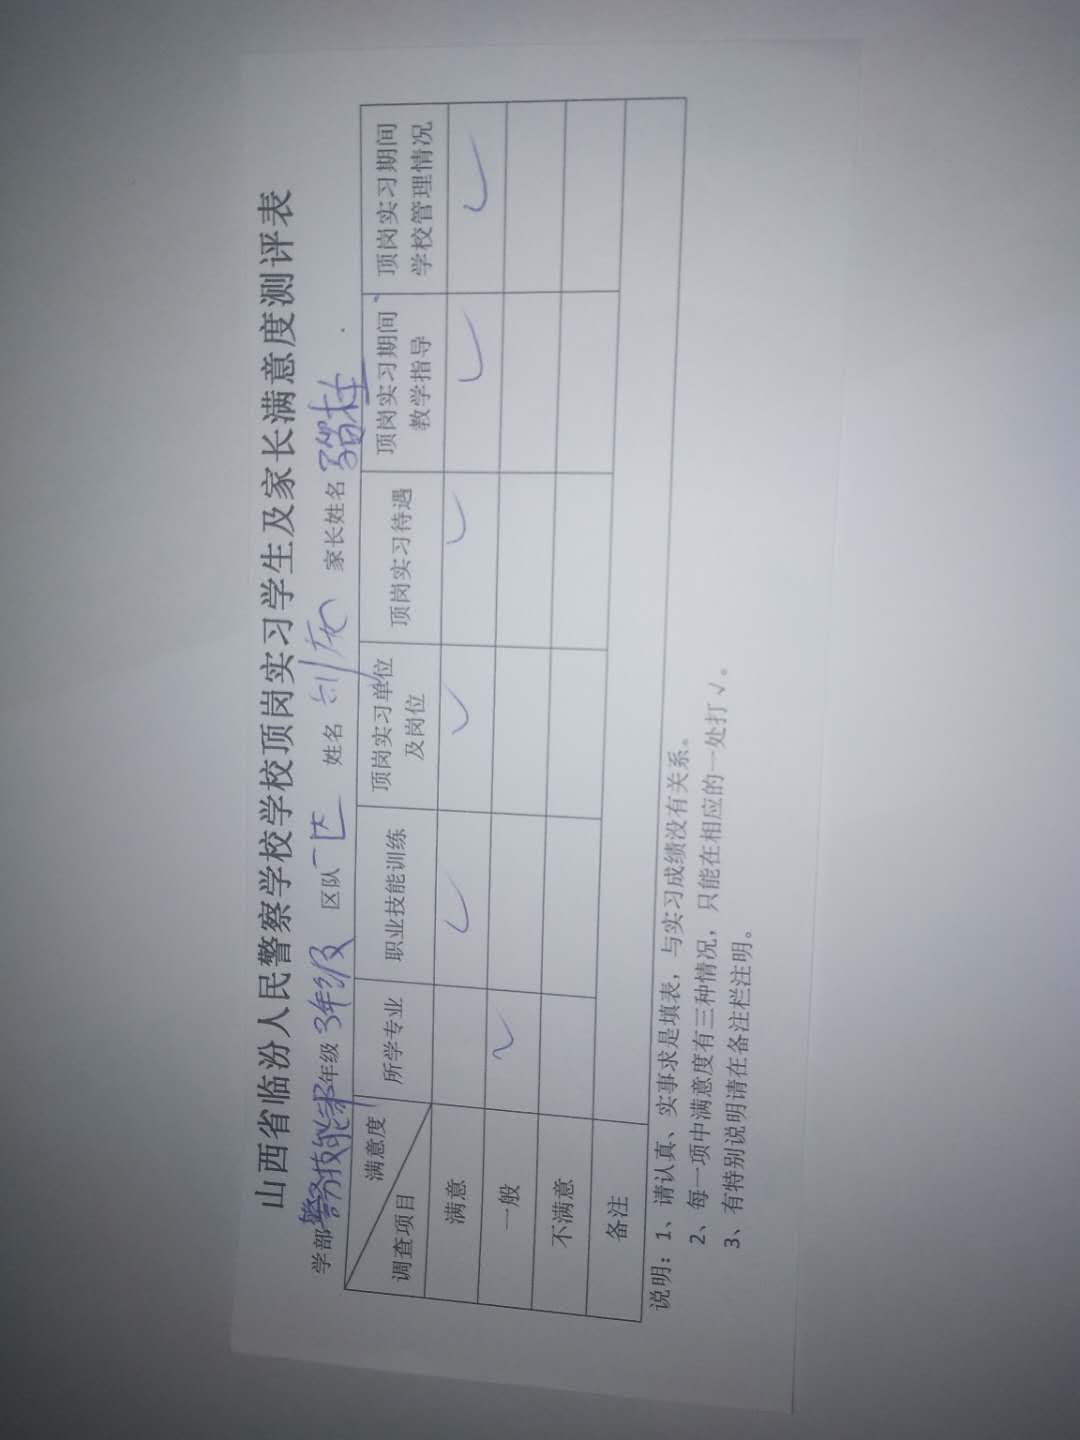 山西省临汾人民警察学校学校顶岗实习学生及家长满意度测评表
学部 年级 3年级 区队 一区 姓名 家长姓名
满意度 调查项目 所学专业 职业技能训练 顶岗实习单位及岗位 顶岗实习待遇 顶岗实习期间教学指导 顶岗实习期间学校管理情况
满意 ✓ ✓ ✓ ✓ ✓
一般 ✓
不满意
备注
说明：1、请认真、实事求是填表，与实习成绩没有关系。
2、每一项中满意度有三种情况，只能在相应的一处打√。
3、有特别说明请在备注栏注明。